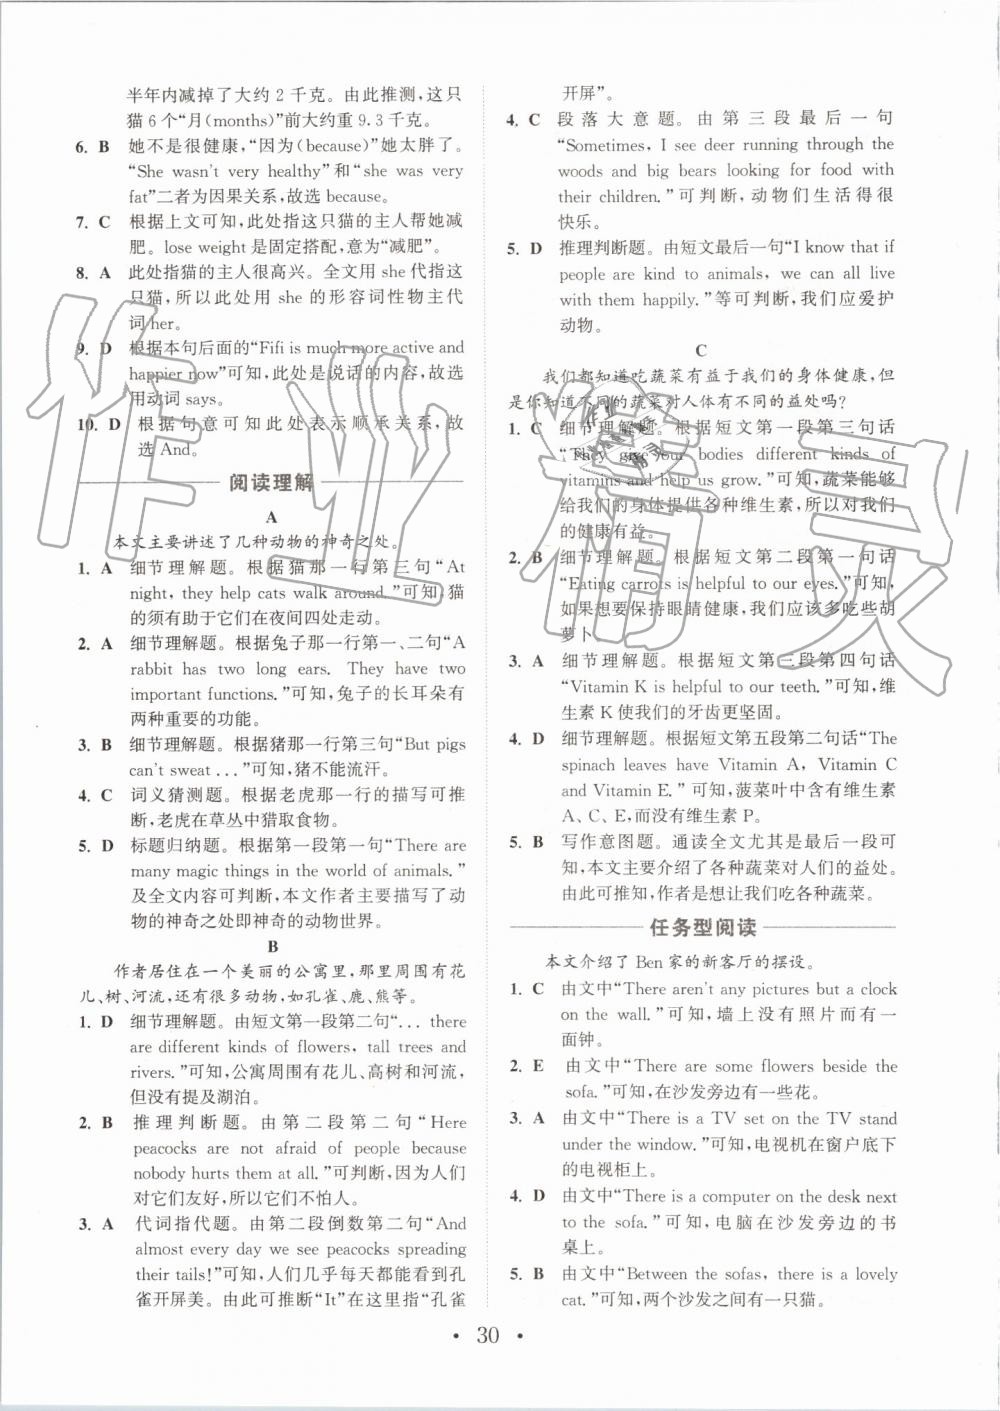 半年内减掉了大约 2 千克。由此推测,这只
猫 6 个“月(months)”前大约重 9.3 千克。
6. B 她不是很健康,“因为(because)”她太胖了。
“She wasn't very healthy”和“she was very
fat”二者为因果关系,故选 because。
7. C 根据上文可知,此处指这只猫的主人帮她减
肥。lose weight 是固定搭配,意为“减肥”。
8. A 此处指猫的主人很高兴。全文用 she 代指这
只猫,所以此处用 she 的形容词性物主代
词 her。
9. D 根据本句后面的“Fifi is much more active and
happier now”可知,此处是说话的内容,故选
用动词 says。
10. D 根据句意可知此处表示顺承关系,故
选 And。
阅读理解
A
本文主要讲述了几种动物的神奇之处。
1. A 细节理解题。根据猫那一行第三句“At
night, they help cats walk around.”可知,猫
的须有助于它们在夜间四处走动。
2. A 细节理解题。根据兔子那一行第一、二句“A
rabbit has two long ears. They have two
important functions.”可知,兔子的长耳朵有
两种重要的功能。
3. B 细节理解题。根据猪那一行第三句“But pigs
can't sweat ...”可知,猪不能流汗。
4. C 词义猜测题。根据老虎那一行的描写可推
断,老虎在草丛中猎取食物。
5. D 标题归纳题。根据第一段第一句“There are
many magic things in the world of animals.”
及全文内容可判断,本文作者主要描写了动
物的神奇之处即神奇的动物世界。
B
作者居住在一个美丽的公寓里,那里周围有花
儿、树、河流,还有很多动物,如孔雀、鹿、熊等。
1. D 细节理解题。由短文第一段第二句“... there
are different kinds of flowers, tall trees and
rivers.”可知,公寓周围有花儿、高树和河流,
但没有提及湖泊。
2. B 推理判断题。由第二段第二句“Here
peacocks are not afraid of people because
nobody hurts them at all.”可判断,因为人们
对它们友好,所以它们不怕人。
3. A 代词指代题。由第二段倒数第二句“And
almost every day we see peacocks spreading
their tails!”可知,人们几乎每天都能看到孔
雀开屏美。由此可推断“It”在这里指“孔雀
开屏”。
4. C 段落大意题。由第三段最后一句
“Sometimes, I see deer running through the
woods and big bears looking for food with
their children.”可判断,动物们生活得很
快乐。
5. D 推理判断题。由短文最后一句“I know that if
people are kind to animals, we can all live
with them happily.”等可判断,我们应爱护
动物。
C
我们都知道吃蔬菜有益于我们的身体健康,但
是你知道不同的蔬菜对人体有不同的益处吗?
1. C 细节理解题。根据短文第一段第三句话
“They give your bodies different kinds of
vitamins and help us grow.”可知,蔬菜能够
给我们的身体提供各种维生素,所以对我们
的健康有益。
2. B 细节理解题。根据短文第二段第一句话
“Eating carrots is helpful to our eyes.”可知,
如果想要保持眼睛健康,我们应该多吃些胡
萝卜。
3. A 细节理解题。根据短文第三段第四句话
“Vitamin K is helpful to our teeth.”可知,维
生素 K 使我们的牙齿更坚固。
4. D 细节理解题。根据短文第五段第二句话“The
spinach leaves have Vitamin A, Vitamin C
and Vitamin E.”可知,菠菜叶中含有维生素
A、C、E,而没有维生素 P。
5. B 写作意图题。通读全文尤其是最后一段可
知,本文主要介绍了各种蔬菜对人们的益处。
由此可推知,作者是想让我们吃各种蔬菜。
任务型阅读
本文介绍了 Ben 家的新客厅的摆设。
1. C 由文中“There aren't any pictures but a clock
on the wall.”可知,墙上没有照片而有一
面钟。
2. E 由文中“There are some flowers beside the
sofa.”可知,在沙发旁边有一些花。
3. A 由文中“There is a TV set on the TV stand
under the window.”可知,电视机在窗户底下
的电视柜上。
4. D 由文中“There is a computer on the desk next
to the sofa.”可知,电脑在沙发旁边的书
桌上。
5. B 由文中“Between the sofas, there is a lovely
cat.”可知,两个沙发之间有一只猫。
• 30 •
作业精灵